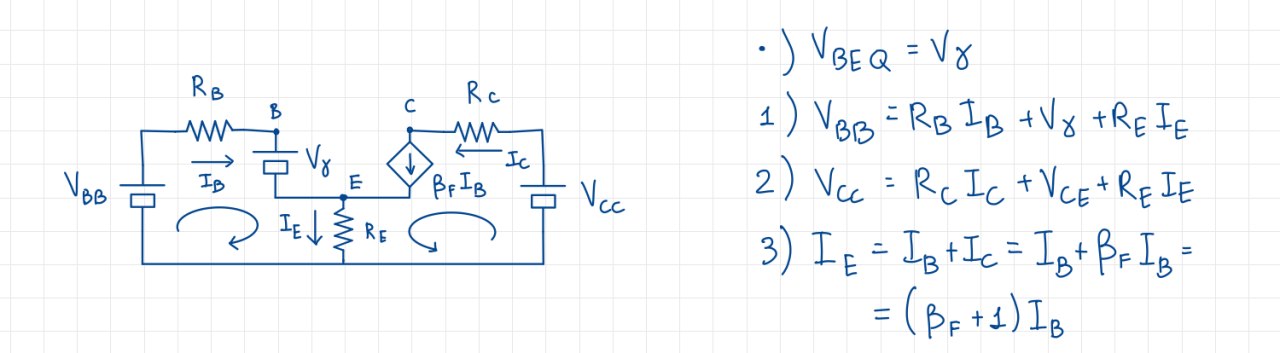 R_B
B
V_BB
I_B
V_γ
E
I_E
R_E
C
R_C
I_C
β_F I_B
V_CC
·) V_BEQ = V_γ
1) V_BB = R_B I_B + V_γ + R_E I_E
2) V_CC = R_C I_C + V_CE + R_E I_E
3) I_E = I_B + I_C = I_B + β_F I_B =
= (β_F + 1) I_B